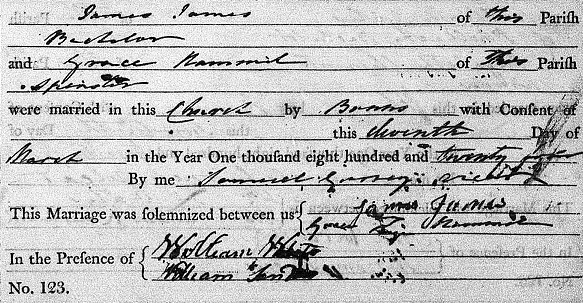 James James of this Parish
Bachelor
and Grace Hammil of This Parish
Spinster
were married in this Church by Banns with Consent of
this Day of
March in the Year One thousand eight hundred and twenty
By me Samuel
This Marriage was solemnized between us James James
Grace
In the Presence of William White
William
No. 123.